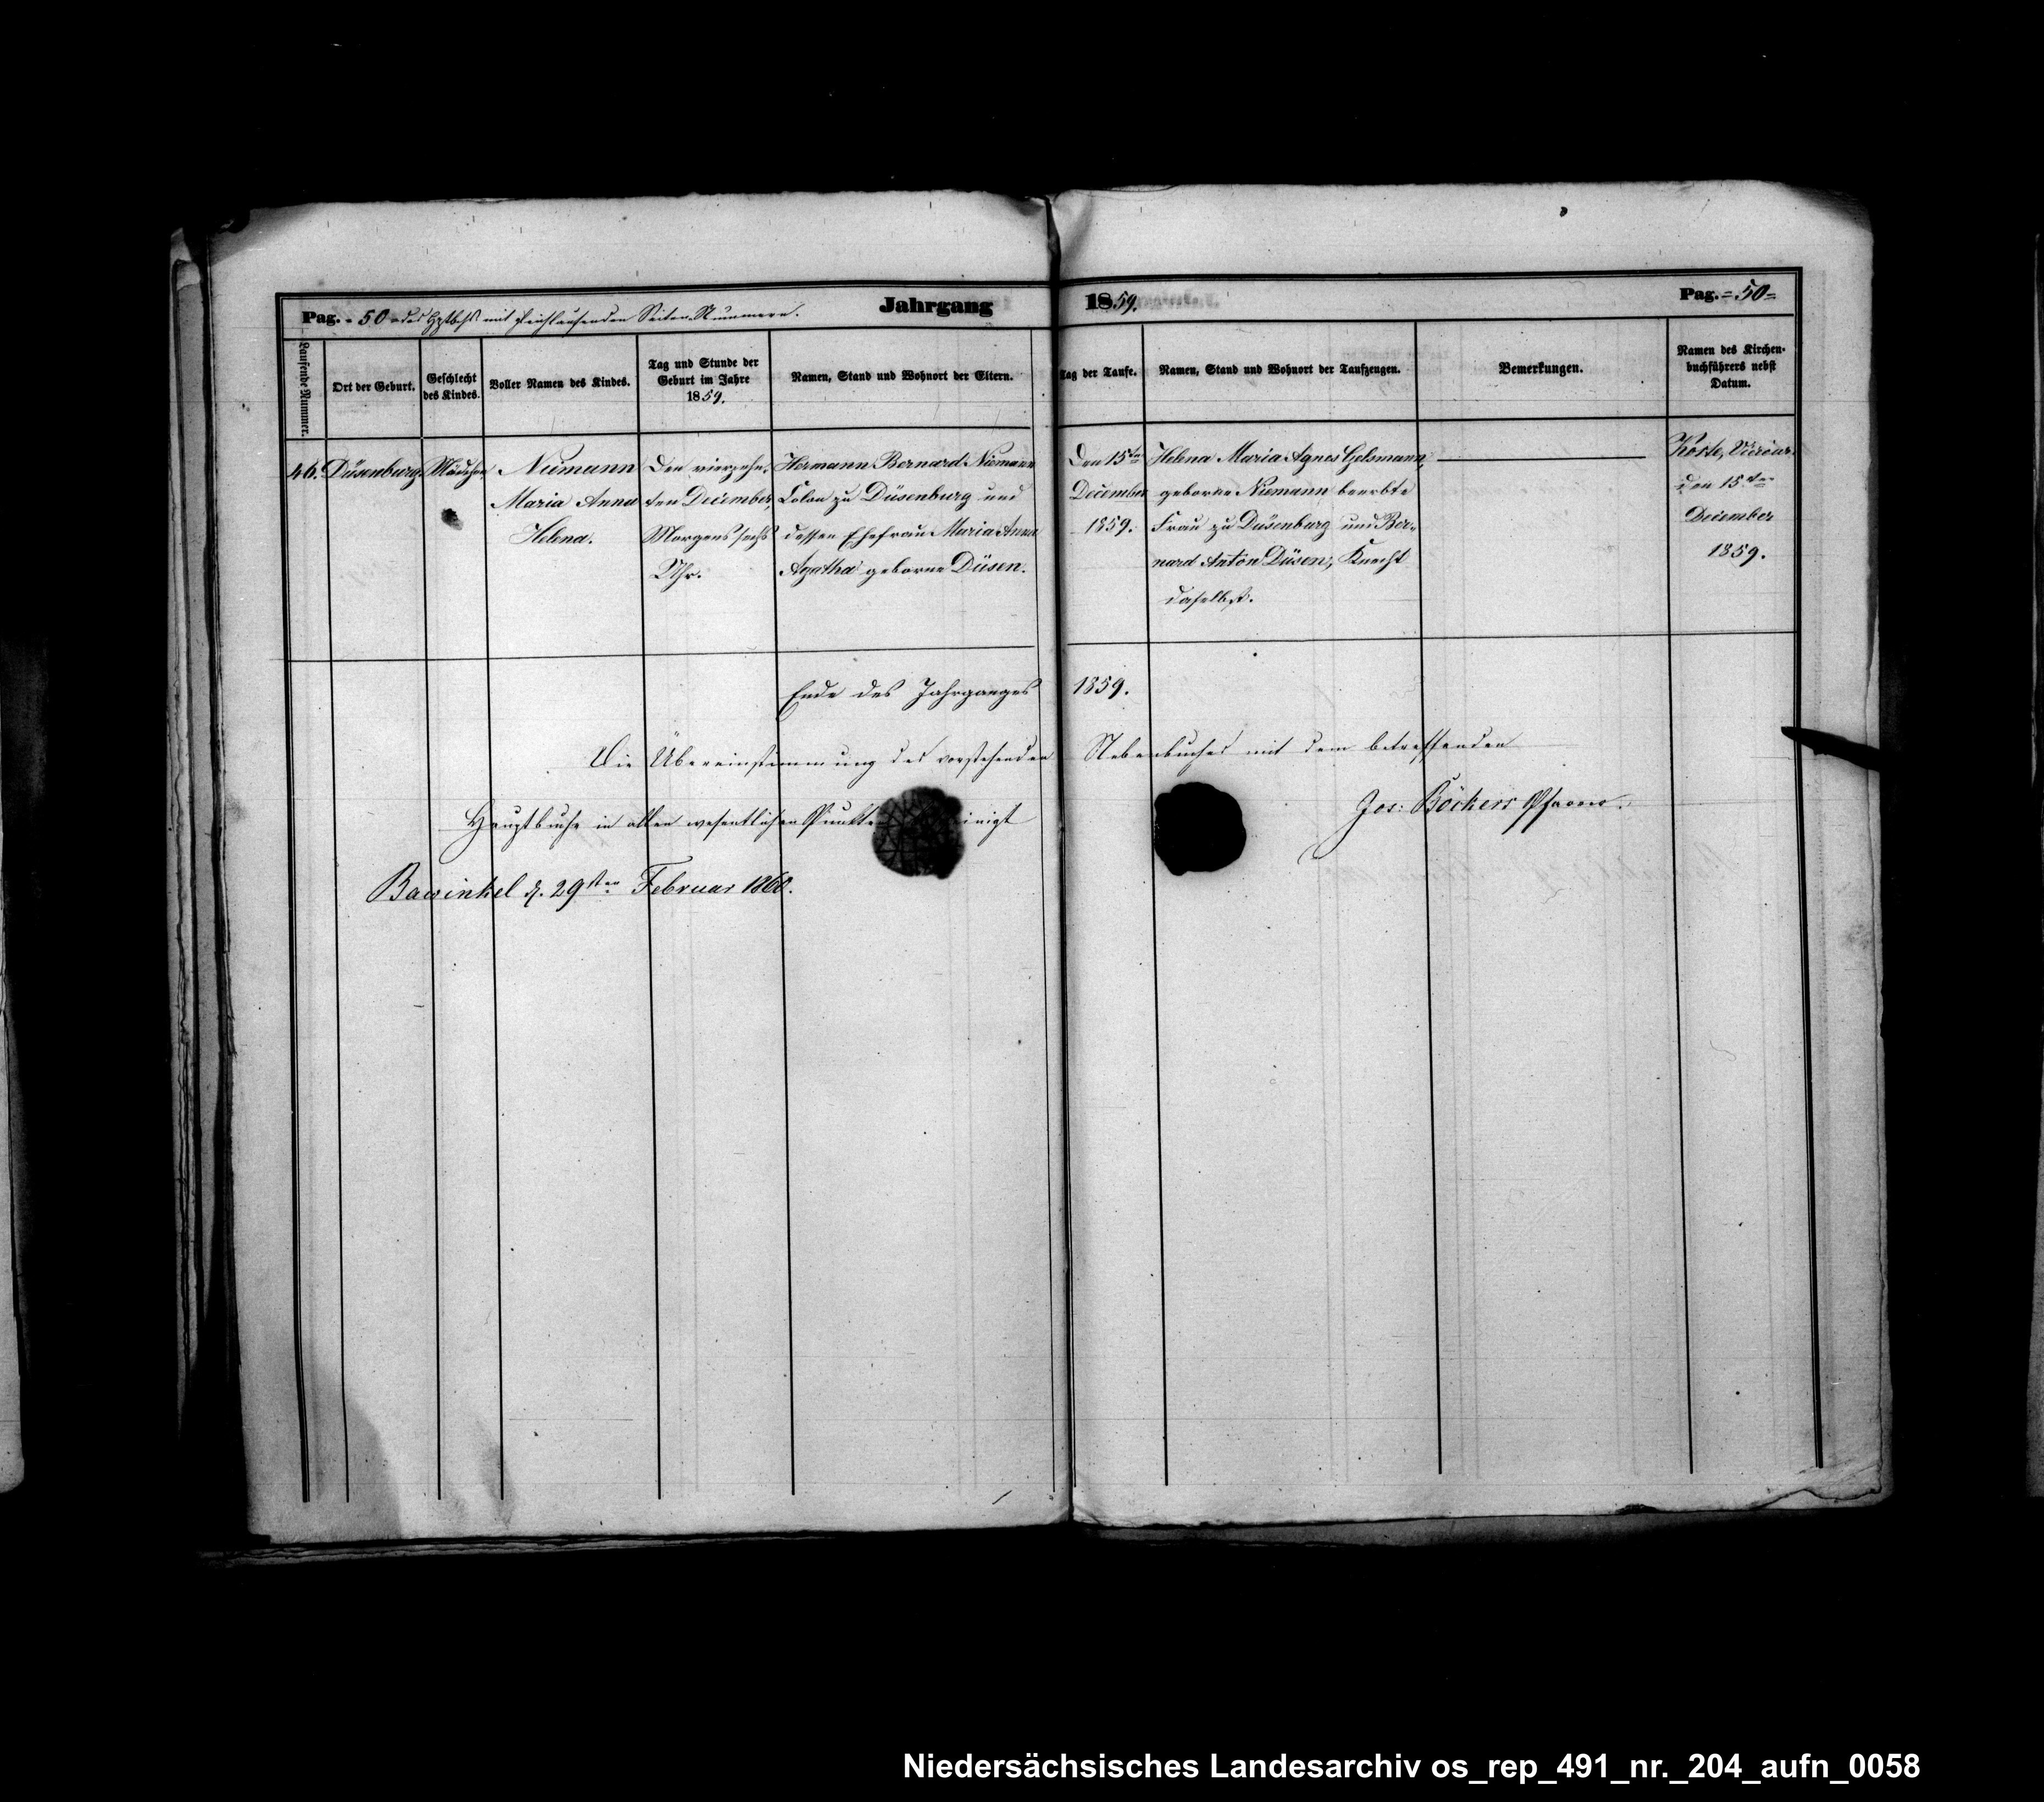 Pag. = 50 = des Hptbchs mit gleichlaufenden Seiten-Nummern.
Jahrgang 1859.
Pag. = 50 =
Laufende Nummer.
Ort der Geburt.
Geschlecht
des Kindes.
Voller Namen des Kindes.
Tag und Stunde der
Geburt im Jahre
1859.
Namen, Stand und Wohnort der Eltern.
Tag der Taufe.
Namen, Stand und Wohnort der Taufzeugen.
Bemerkungen.
Namen des Kirchen-
buchführers nebst
Datum.
46.
Düsenburg.
Mädchen
Niemann
Maria Anna
Helena.
Den vierzehn-
ten December,
Morgens sechs
Uhr.
Hermann Bernard Niemann
Colon zu Düsenburg und
dessen Ehefrau Maria Anna
Agatha geborne Düsen.
Den 15ten
December
1859.
Helena Maria Agnes
geborne Niemann beerbte
Frau zu Düsenburg und Ber-
nard Anton Düsen, Knecht
daselbst.
Vicecur.
den 15ten
December
1859.
Ende des Jahrganges 1859.
Die Übereinstimmung des vorstehenden Nebenbuches mit dem betreffenden
Hauptbuche in allen wesentlichen Punkten
Jos: Böckers Pfarrer.
Bawinkel d. 29sten Februar 1860.
Niedersächsisches Landesarchiv os_rep_491_nr._204_aufn_0058